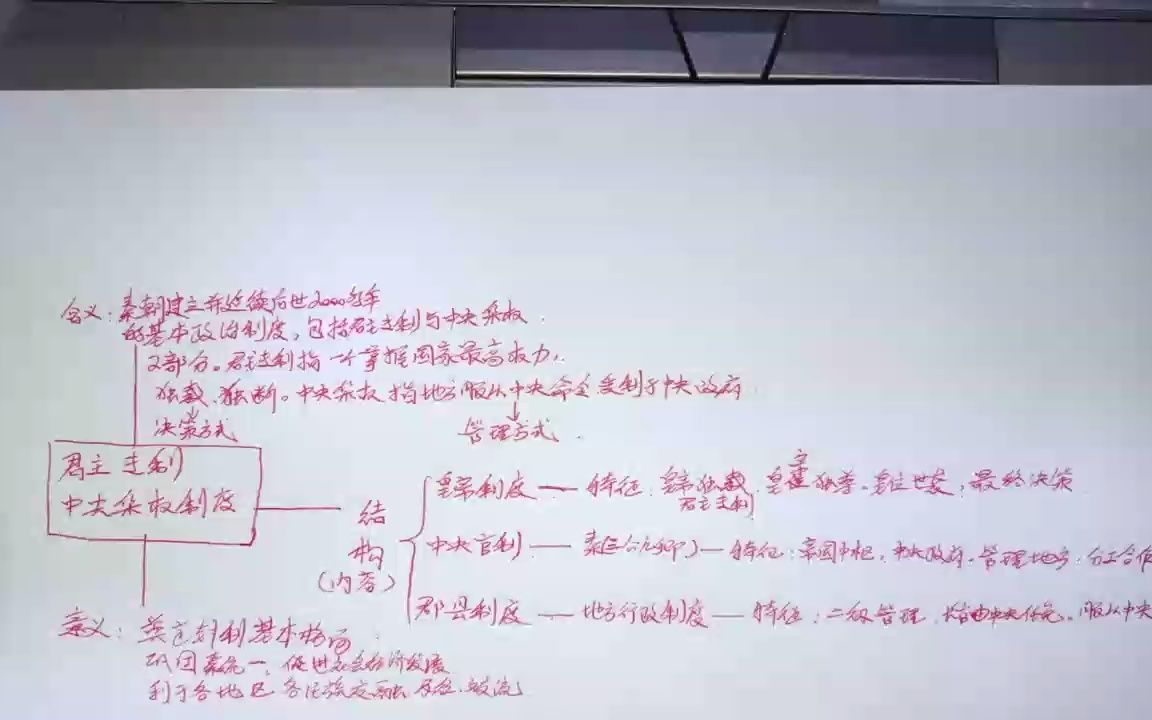 含义：秦朝建立并延续后世2000多年
的基本政治制度，包括君主专制与中央集权
2部分。君主专制指一个掌握国家最高权力，
独裁、独断。中央集权指地方服从中央命令 受制于中央政府
决策方式
管理方式
君主专制
中央集权制度
结
构
（内容）
皇帝制度 — 特征：皇帝独裁，皇 独尊，皇位世袭，最终决策
君主专制
中央官制 — 秦（三公九卿）— 特征：帝国中枢，中央政府，管理地方，分工合作
郡县制度 — 地方行政制度 — 特征：二级管理，长官由中央任免，服从中央
意义：奠定封制基本格局
巩固秦统一，促进社会经济发展
利于各地区各民族交融 交流